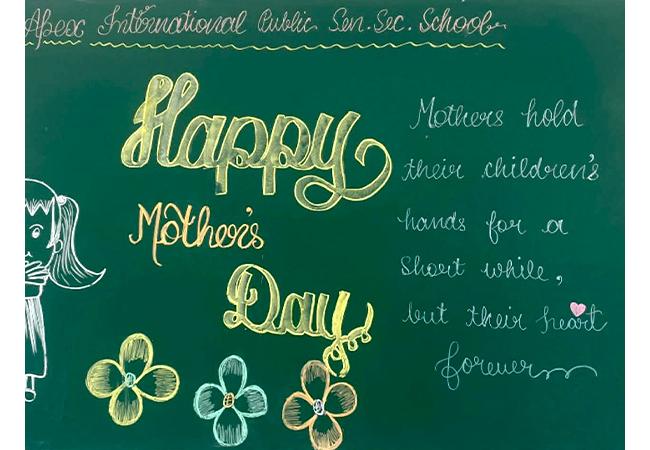 Apex International Public Sen. Sec. School
Happy
Mother's
Day
Mothers hold
their children's
hands for a
short while,
but their heart
forever